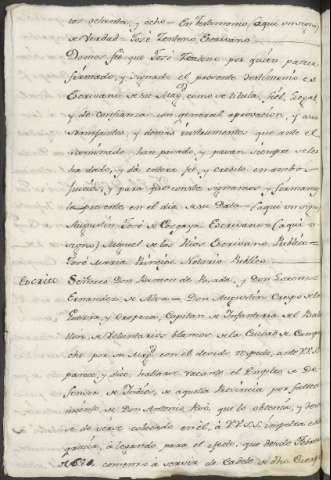 tos ochenta, y ocho = En testimonio, (aqui un signo)
de Verdad = José Zenteno Escrivano
Damos feé que José Zenteno por quien parece
firmado, y signado el presente testimonio es
Escrivano de su Mag.d como se titula, fiel, legal
y de confianza con general aprovacion, y a sus
semejantes, y demás instrumentos que ante el
nominado han pasado, y pasan siempre se les
ha dado, y dá entera feé, y credito en ambos
Juicios; y para que conste signamos, y firmamos
la presente en el dia de su Data = (aqui un signo)
Agustin José de = (aqui un
signo) Miguel de los Rios Escrivano Publico =
José Maria Notario Publico
Escrito Señores Don Ramon de Posada, y Don Lorenzo
Hernandez de Alva = Don Agustin Crespo de la
Guerra, y Oropeza, Capitan de Infanteria del Bata-
llon de Voluntarios blancos de la Ciudad de Campe-
che por su Mag. con el devido respeto, ante V.S.S.
parece y dice: hallarse vacante el Empleo de De-
fensor de Indios, de aquella Provincia por falleci-
miento de Don Antonio que lo obtenia, y deve
de ser el colocado en él, a V.V.S.S. impetra esta
gracia, alegando para el efecto, que desde Febrero
comenzó a servir de Cadete de dho Cuerpo